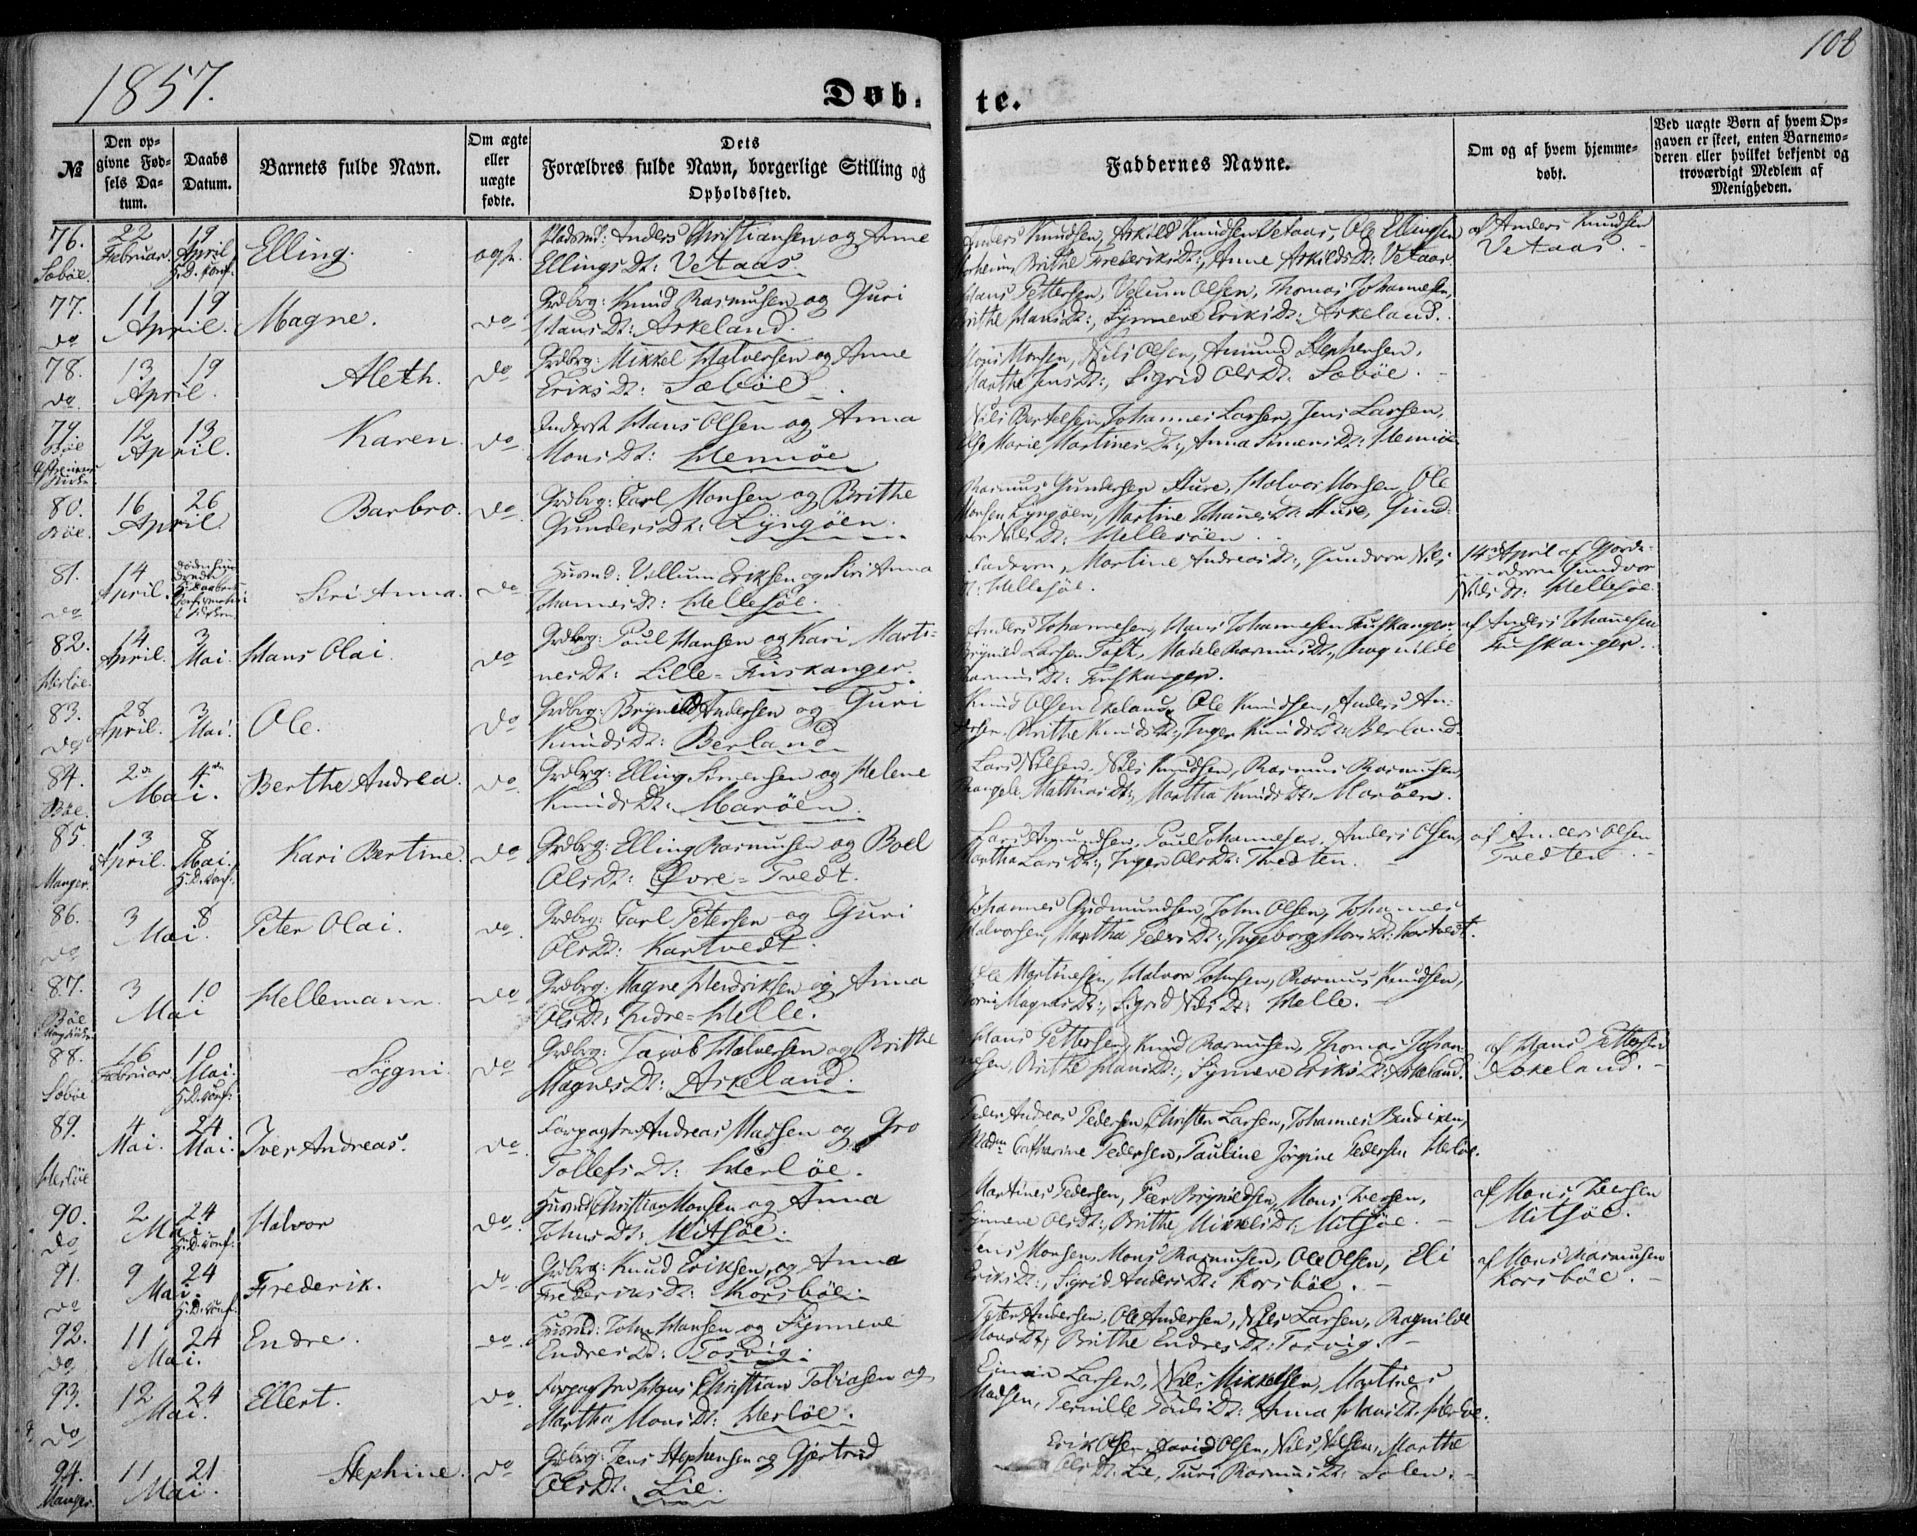 1857.
108
Døb-
te.
№
Den op-
givne Fød-
sels Da-
tum.
Daabs
Datum.
Barnets fulde Navn.
Om ægte
eller
uægte
fødte.
Dets
Forældres fulde Navn, borgerlige Stilling og
Opholdssted.
Faddernes Navne.
Om og af hvem hjemme-
døbt.
Ved uægte Børn af hvem Op-
gaven er skeet, enten Barnemo-
deren eller hvilket bekjendt og
troværdigt Medlem af
Menigheden.
76. 22 19 Elling. ægt.
Sæbøe. Februar. April
Anders Christiansen og Anne
Ellings Dt: Vetaas.
Anders Knudsen, Askild Knudsen Vetaas, Ole Ellingsen
Brithe Frederiks Dt:, Anne Askilds Dt: Vetaas
af Anders Knudsen
Vetaas.
77. 11 19 Magne. do
do April.
Grdbrg: Knud Rasmusen og Guri
Hans Dt: Askeland.
Hans Pettersen, Velum Olsen, Thomas Johannesen,
Brithe Hans Dt:, Synneve Eriks Dt: Askeland.
78. 13 19 Aleth. do
do April.
Grdbrg: Mikkel Halversen og Anne
Eriks Dt: Sæbøe.
Mons Monsen, Nils Olsen, Amund Stephensen,
Marthe Jens Dt:, Sigrid Ols Dt: Sæbøe.
79. 12 13 Karen. do
Bøe April.
Inderst Hans Olsen og Anna
Mons Dt: Hennøe
Nils Bertelsen, Johannes Larsen, Jens Larsen,
Marie Martines Dt:, Anna Simens Dt: Hennøe
80. 16 26 Barbro. do
Bøe. April.
Grdbrg: Carl Monsen og Brithe
Gunders Dt: Lyngøen.
Rasmus Gundersen Huse, Halvor Monsen, Ole
Monsen Lyngøen, Martine Johannes Dt: Huse, Gund-
vor Nils Dt: Hellesøen.
81. 14 Siri Anna. do
do April.
Husmd: Villum Eriksen og Siri Anna
Johannes Dt: Hellesøe.
Faderen, Martine Andreas Dt:, Gundvor Nils
Dt: Hellesøe.
14de April af Gjorde-
moderen Gundvor
Nils Dt: Hellesøe.
82. 14 3 Hans Olai. do
Herløe. April. Mai.
Grdbrg: Poul Hansen og Kari Marti-
nes Dt: Lille-Fuskanger.
Anders Johannesen, Hans Johannesen Fuskanger
Brynild Larsen Toft, Madele Rasmus Dt:, Ragnilde
Rasmus Dt: Fuskanger.
af Anders Johannesen
Fuskanger.
83. 28 3 Ole. do
do April. Mai.
Grdbrg: Brynild Andersen og Guri
Knuds Dt: Berland
Knud Olsen Ekeland, Ole Knudsen, Anders An-
dersen. Brithe Knuds Dt:, Inger Knuds Dt: Berland.
84. 2den 4den Berthe Andrea. do
Bøe. Mai.
Grdbrg: Elling Simensen og Helene
Knuds Dt: Marøen.
Lars Nilsen, Nils Knudsen, Rasmus Rasmusen,
Mathias Dt:, Martha Knuds Dt: Marøen.
85. 13 8 Kari Bertine. do
Manger. April. Mai.
Grdbrg: Elling Rasmusen og Boel
Ols Dt: Øvre-Tvedt.
Lars Asmundsen, Poul Johannesen, Anders Olsen,
Martha Lars Dt:, Inger Ols Dt: Tvedten.
af Anders Olsen
Tvedten.
86. 3 8 Peter Olai. do
do Mai.
Grdbrg: Carl Petersen og Guri
Ols Dt: Kartvedt.
Johannes Gudmundsen, John Olsen, Johannes
Halvorsen, Martha Peders Dt:, Ingeborg Mons Dt: Kartvedt.
87. 3 10 Hellemann. do
Bøe Mai
Grdbrg: Magne Hendriksen og Anna
Ols Dt: Indre-Helle.
Ole Martinesen, Halvor Johnsen, Rasmus Knudsen,
Magnes Dt:, Sigrid Nils Dt: Helle.
88. 16 10 Sygni. do
Sæbøe Februar. Mai.
Grdbrg: Jacob Halversen og Brithe
Magnes Dt: Askeland.
Hans Pettersen, Knud Rasmusen, Thomas Johan-
nesen, Brithe Hans Dt:, Synneve Eriks Dt: Askeland.
af Hans Pettersen
Askeland.
89. 4 24 Iver Andreas. do
Herløe Mai. Mai.
Forpagter Andreas Madsen og Gro
Tollefs Dt: Herløe.
Peder Andreas Pedersen, Christen Larsen, Johannes Bendixen,
Madm Cathrine Pedersen, Pauline Jørgine Pedersen Herløe.
90. 2 24 Halvor do.
do Mai.
Husmd Christian Monsen og Anna
Johns Dt: Mitsøe.
Martines Pedersen, Peer Brynildsen, Mons Iversen,
Synneve Ols Dt:, Brithe Mikkels Dt: Mitsøe.
af Mons Iversen
Mitsøe.
91. 9 24 Frederik. do
do Mai.
Grdbrg: Knud Eriksen og Anna
Dt: Korsbøe.
Jens Monsen, Mons Rasmusen, Ole Olsen, Eli
Eriks Dt:, Sigrid Anders Dt: Korsbøe.
af Mons Rasmusen
Korsbøe.
92. 11 24 Endre. do.
do. Mai.
Husmd: John Hansen og Synneve
Endres Dt: Torvig.
Peter Andersen, Ole Andersen, Nils Larsen, Ragnilde
Mons Dt, Brithe Endres Dt: Torvig.
93. 12 24 Ellert. do.
do Mai.
Forpagter Hans Christian Tobiasen og
Martha Mons Dt: Herløe.
Larsen, Nils Mikkelsen, Martines
Madsen, Pernille Pouls Dt: Anna Hans Dt. Herløe.
94. 11 21 Stephine. do
Manger. Mai.
Grdbrg: Jens Stephensen og Gjertrud
Ols Dt: Lie.
Erik Olsen, David Olsen, Nils Nilsen, Marthe
Ols Dt: Lie, Turi Rasmus Dt: Solen.